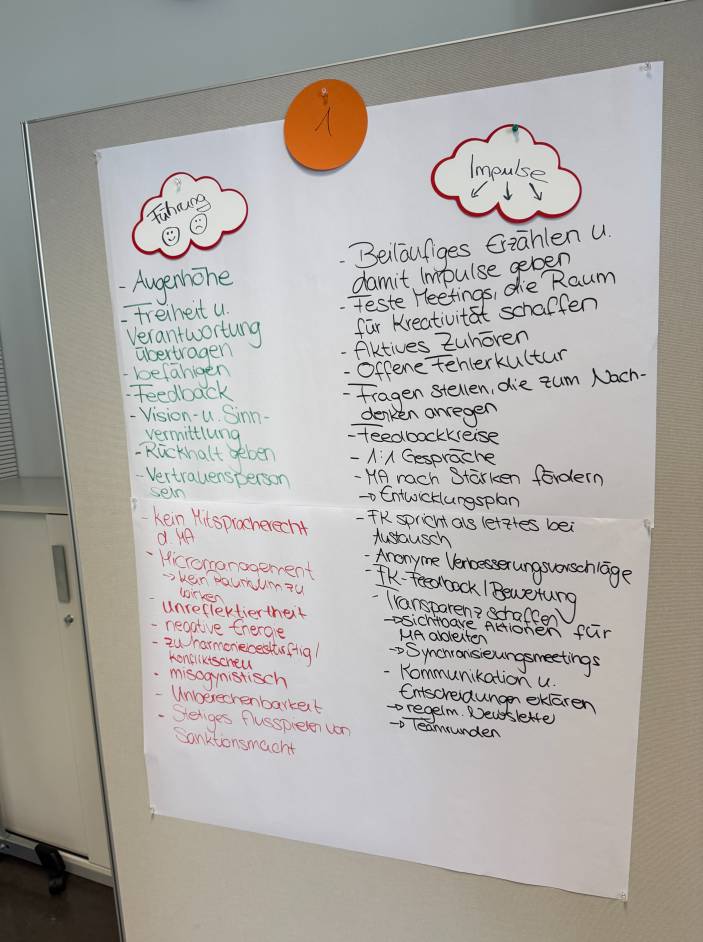 1
Führung
- Augenhöhe
- Freiheit u.
Verantwortung
übertragen
- befähigen
- Feedback
- Vision- u. Sinn-
vermittlung
- Rückhalt geben
- Vertrauensperson
sein
- kein Mitspracherecht
d. MA
- Micromanagement
→ kein Raum um zu
wirken
- unreflektiertheit
- negative Energie
- zu harmoniebedürftig/
konfliktscheu
- misogynistisch
- Unberechenbarkeit
- Stetiges Ausspielen von
Sanktionsmacht
Impulse
- Beiläufiges Erzählen u.
damit Impulse geben
- Feste Meetings, die Raum
für Kreativität schaffen
- Aktives Zuhören
- Offene Fehlerkultur
- Fragen stellen, die zum Nach-
denken anregen
- Feedbackkreise
- 1:1 Gespräche
- MA nach Stärken fördern
→ Entwicklungsplan
- FK spricht als letztes bei
Austausch
- Anonyme Verbesserungsvorschläge
- FK-Feedback/Bewertung
- Transparenz schaffen
→ sichtbare Aktionen für
MA ableiten
→ Synchronisierungsmeetings
- Kommunikation u.
Entscheidungen erklären
→ regelm. Newsletter
→ Teamrunden